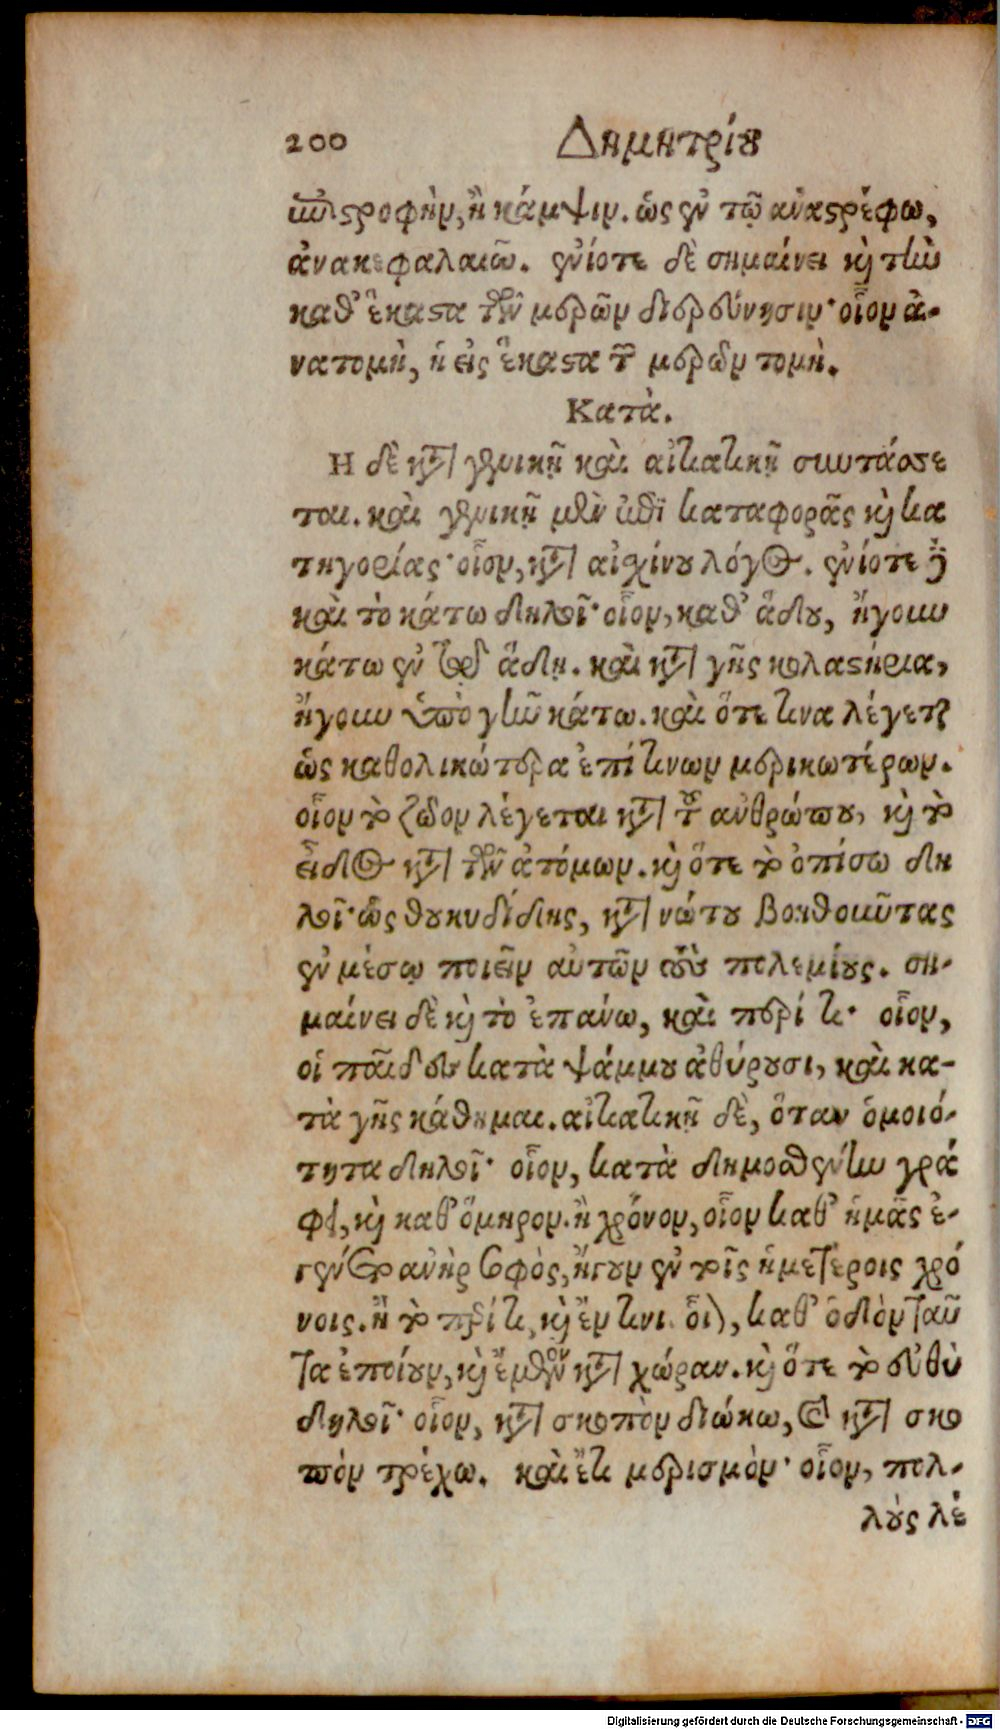 200 Δημητρίου
ἐπιστροφὴν, ἢ κάμψιν. ὡς ἐν τῷ ἀναστρέφω,
ἀνακεφαλαιῶ. ἐνίοτε δὲ σημαίνει καὶ τὴν
καθ᾽ ἕκαστα τῶν μερῶν διερεύνησιν· οἷον ἀ-
νατομὴ, ἡ εἰς ἕκαστα τῶν μερῶν τομὴ.
Κατὰ.
Η δὲ κατὰ γενικῇ καὶ αἰτιατικῇ συντάσσε
ται. καὶ γενικῇ μὲν ἐπὶ καταφορᾶς καὶ κα
τηγορίας· οἷον, κατὰ αἰσχίνου λόγος. ἐνίοτε δὲ
καὶ τὸ κάτω δηλοῖ· οἷον, καθ᾽ ἅδου, ἤγουν
κάτω ἐν τῷ ἅδῃ. καὶ κατὰ γῆς κολαστήρια,
ἤγουν ὑπὸ γῆν κάτω. καὶ ὅτε τινα λέγεται
ὡς καθολικώτερα ἐπί τινων μερικωτέρων.
οἷον τὸ ζῶον λέγεται κατὰ τοῦ ἀνθρώπου, καὶ τὸ
εἶδος κατὰ τῶν ἀτόμων. καὶ ὅτε τὸ ὀπίσω δη
λοῖ· ὡς θουκυδίδης, κατὰ νώτου βοηθοῦντας
ἐν μέσῳ ποιεῖν αὐτῶν τοὺς πολεμίους. ση-
μαίνει δὲ καὶ τὸ ἐπάνω, καὶ περί τι· οἷον,
οἱ παῖδες κατὰ ψάμμου ἀθύρουσι, καὶ κα-
τὰ γῆς κάθημαι. αἰτιατικῇ δὲ, ὅταν ὁμοιό-
τητα δηλοῖ· οἷον, κατὰ δημοσθένην γρά
φει, καὶ καθ᾽ ὅμηρον. ἢ χρόνον, οἷον καθ᾽ ἡμᾶς ἐ-
γένετο ἀνὴρ σοφὸς, ἤγουν ἐν τοῖς ἡμετέροις χρό
νοις. ἢ τὸ περί τι, καὶ ἔν τινι οἷον, καθ᾽ ὁδὸν ταῦ
τα ἐποίουν, καὶ ἔμενον κατὰ χώραν. καὶ ὅτε τὸ εὐθὺ
δηλοῖ· οἷον, κατὰ σκοπὸν διώκω, καὶ κατὰ σκο
πὸν τρέχω. καὶ ἔτι μερισμὸν· οἷον, πολ-
λοὺς λέ
Digitalisierung gefördert durch die Deutsche Forschungsgemeinschaft - DFG